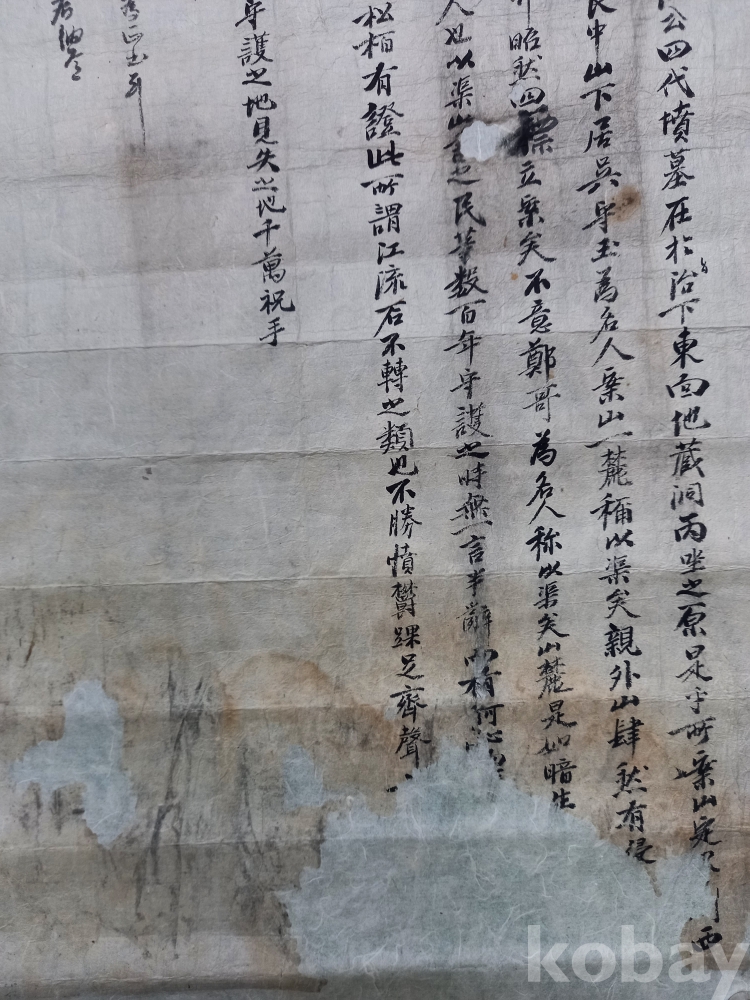 公四代墳墓在於治下東面他藏洞丙坐之原是乎所案山定
民中山下居吳 為名人案山一麓稱以渠矣親外山肆然有侵
昭然四標立案矣不意鄭哥為名人称以渠矣山麓是如暗生
人也以渠山 之民等数百年守護之時無一言半辭而有何心
松栢有證此所謂江流石不轉之類也不勝憤鬱踝足齊聲
守護之地見失之地千萬祝手
kobay